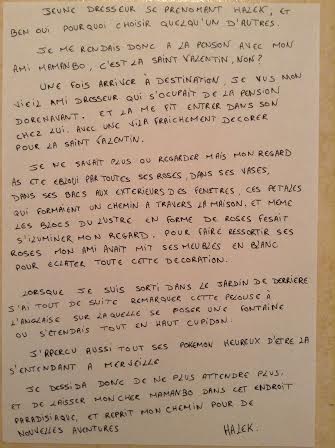 JEUNE DRESSEUR SE PRENOMANT HALEK, ET
BEN OUI POURQUOI CHOISIR QUELQU'UN D'AUTRES.
JE ME RENDAIS DONC A LA PENSION AVEC MON
AMI MAMANBO, C'EST LA SAINT VALENTIN, NON?
UNE FOIS ARRIVER A DESTINATION, JE VUS MON
VIEIL AMI DRESSEUR QUI S'OCCUPAIT DE LA PENSION
DORENAVANT. ET LA ME FIT ENTRER DANS SON
CHEZ LUI. AVEC UNE VILLA FRAICHEMENT DECORER
POUR LA SAINT VALENTIN.
JE NE SAVAIT PLUS OU REGARDER MAIS MON REGARD
AS ETE EBLOUI PAR TOUTES SES ROSES, DANS SES VASES,
DANS SES BACS AUX EXTERIEURS DES FENETRES, CES PETALES
QUI FORMAIENT UN CHEMIN A TRAVERS LA MAISON. ET MEME
LES BLOCS DU LUSTRE EN FORME DE ROSES FESAIT
S'ILUMINER MON REGARD. POUR FAIRE RESSORTIR SES
ROSES MON AMI AVAIT MIT SES MEUBLES EN BLANC
POUR ECLATER TOUTE CETTE DECORATION.
LORSQUE JE SUIS SORTI DANS LE JARDIN DE DERRIERE
J'AI TOUT DE SUITE REMARQUER CETTE PELOUSE A
L'ANGLAISE SUR LAQUELLE SE POSER UNE FONTAINE
OU S'ETENDAIS TOUT EN HAUT CUPIDON.
J'APERCU AUSSI TOUT SES POKEMON HEUREUX D'ETRE LA
S'ENTENDANT A MERVEILLE
JE DESSIDA DONC DE NE PLUS ATTENDRE PLUS.
ET DE LAISSER MON CHER MAMANBO DANS CET ENDROIT
PARADISIAQUE, ET REPRIT MON CHEMIN POUR DE
NOUVELLES AVENTURES
HALEK.